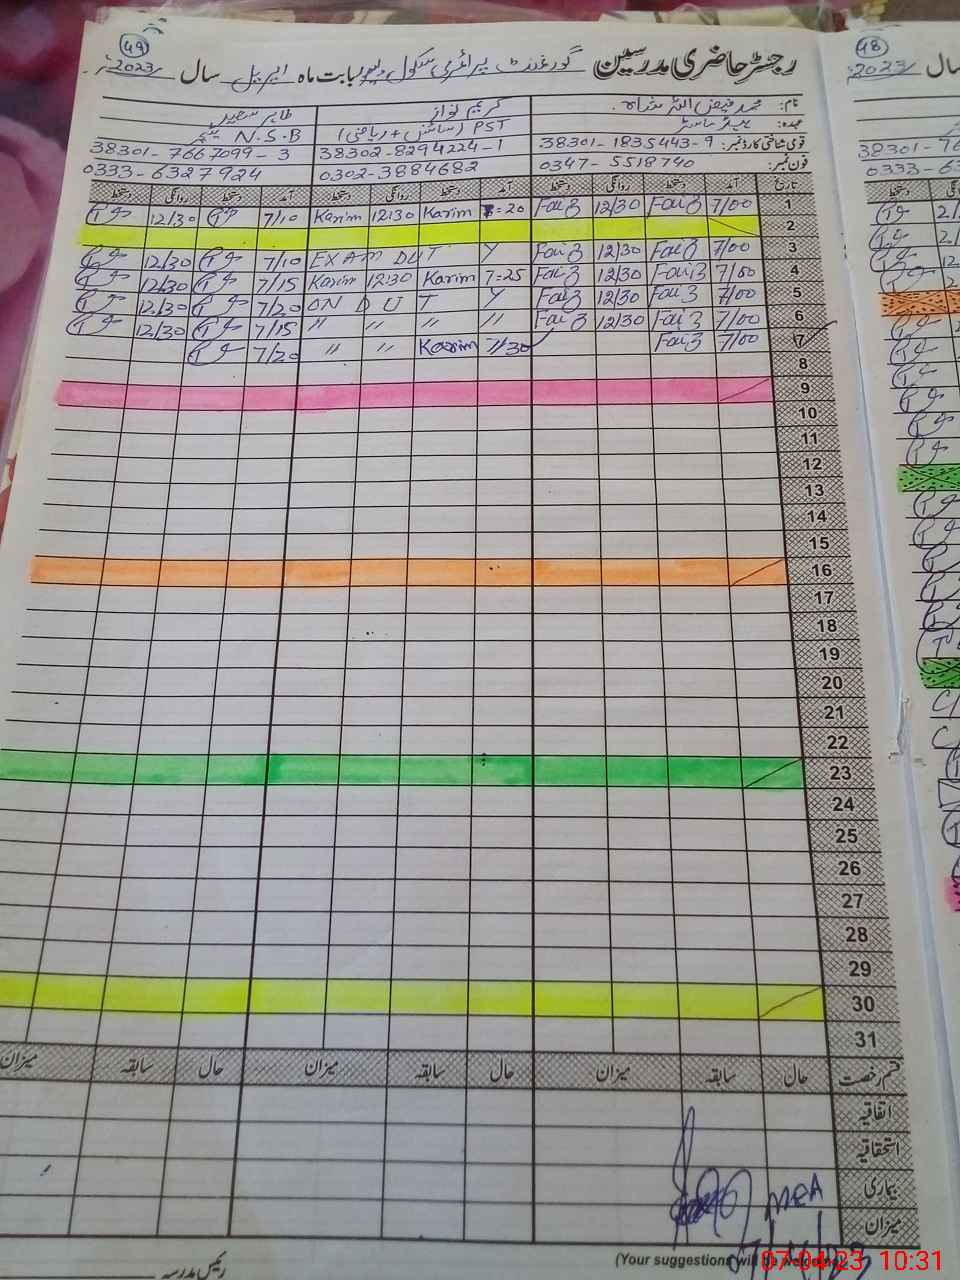 49
رجسٹر حاضری مدرسین گورنمنٹ پرائمری سکول بابت ماہ اپریل سال 2023ء
نام: محمد فیض اللہ شاہ
کریم نواز
عہدہ: ہیڈ ماسٹر
PST (سائنس + ریاضی)
N.S.B ٹیچر
قومی شناختی کارڈ نمبر: 38301-1835443-9
38302-8294224-1
38301-7667099-3
فون نمبر: 0347-5518740
0302-3884682
0333-6327924
تاریخ آمد دستخط روانگی دستخط آمد دستخط روانگی دستخط آمد دستخط روانگی دستخط
1 7/00 Faiz 12/30 Faiz 7=20 Karim 12:30 Karim 7/10 12/30
2
3 7/00 Faiz 12/30 Faiz EXAM DUTY 7/10 12/30
4 7/00 Faiz 12/30 Faiz 7=25 Karim 12:30 Karim 7/15 12/30
5 7/00 Faiz 12/30 Faiz ON DUTY 7/20 12/30
6 7/00 Faiz 12/30 Faiz " " " " 7/15 12/30
7 7/00 Faiz 7/30 Karim " " 7/20
8
9
10
11
12
13
14
15
16
17
18
19
20
21
22
23
24
25
26
27
28
29
30
31
قسم رخصت حال سابقہ میزان حال سابقہ میزان حال سابقہ میزان
اتفاقیہ
استحقاقیہ
بیماری
میزان
MEA
(Your suggestions will be welcome)
رئیس مدرسہ
07-04-23 10:31
48
2023ء
سال
38301-76
0333-6